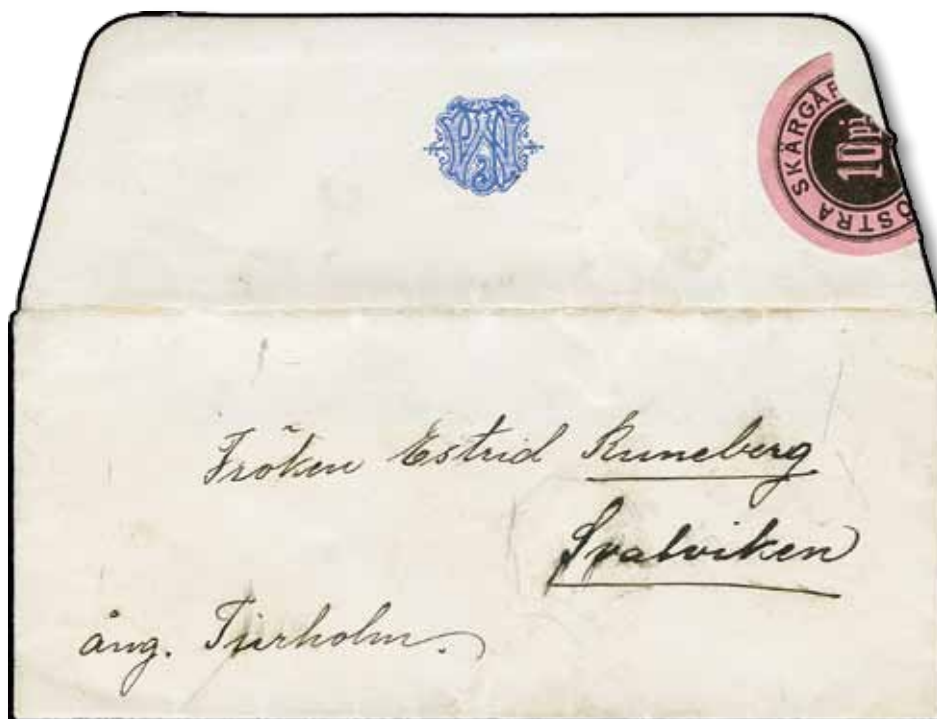 ÖSTRA SKÄRGÅR
10 pi
Fröken Estrid Runeberg
Svalviken
ång. Tjurholm.